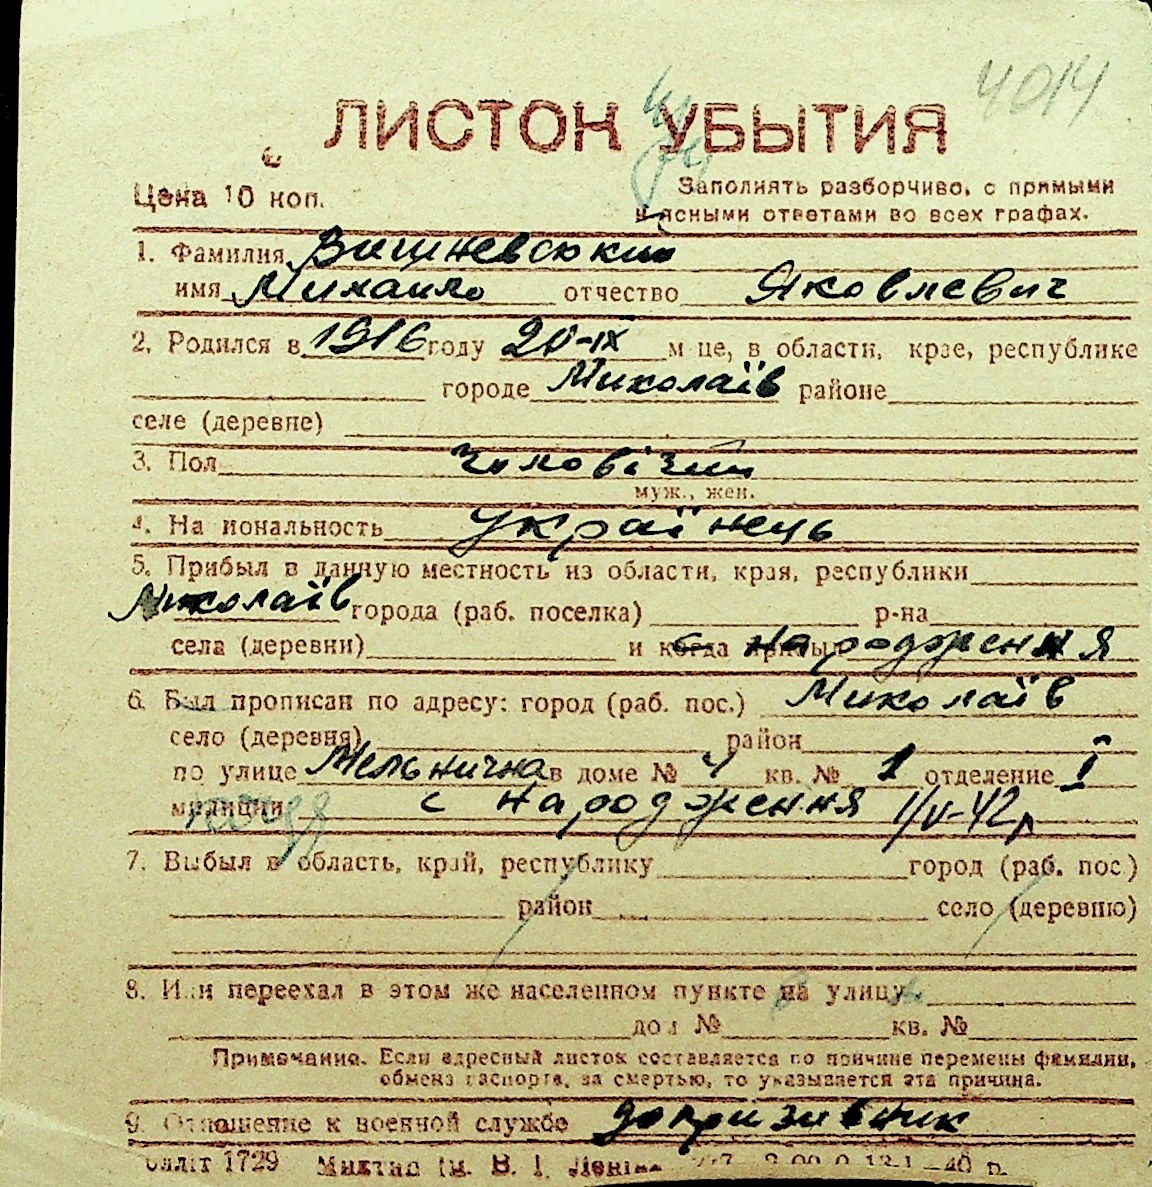 4014
ЛИСТОК УБЫТИЯ
Цена 10 коп.
Заполнять разборчиво, с прямыми
и ясными ответами во всех графах.
1. Фамилия Вишневський
имя Михайло отчество Яковлевич
2. Родился в 1916 году 20-IX м-це, в области, крае, республике
городе Миколаїв районе
селе (деревне)
3. Пол чоловічий
муж., жен.
4. На иональность українець
5. Прибыл в данную местность из области, края, республики
Миколаїв города (раб. поселка) р-на
села (деревни) и когда прибыл с народження
6. Был прописан по адресу: город (раб. пос.) Миколаїв
село (деревня) район
по улице Мельнична в доме № 4 кв. № 1 отделение I
милиции с народження 1/V-42р
7. Выбыл в область, край, республику город (раб. пос)
район село (деревню)
8. Или переехал в этом же населенном пункте на улицу
дом № кв. №
Примечание. Если адресный листок составляется по причине перемены фамилии,
обмена паспорта, за смертью, то указывается эта причина.
9. Отношение к военной службе допризивник
1729 В. І. Леніна 40 р.